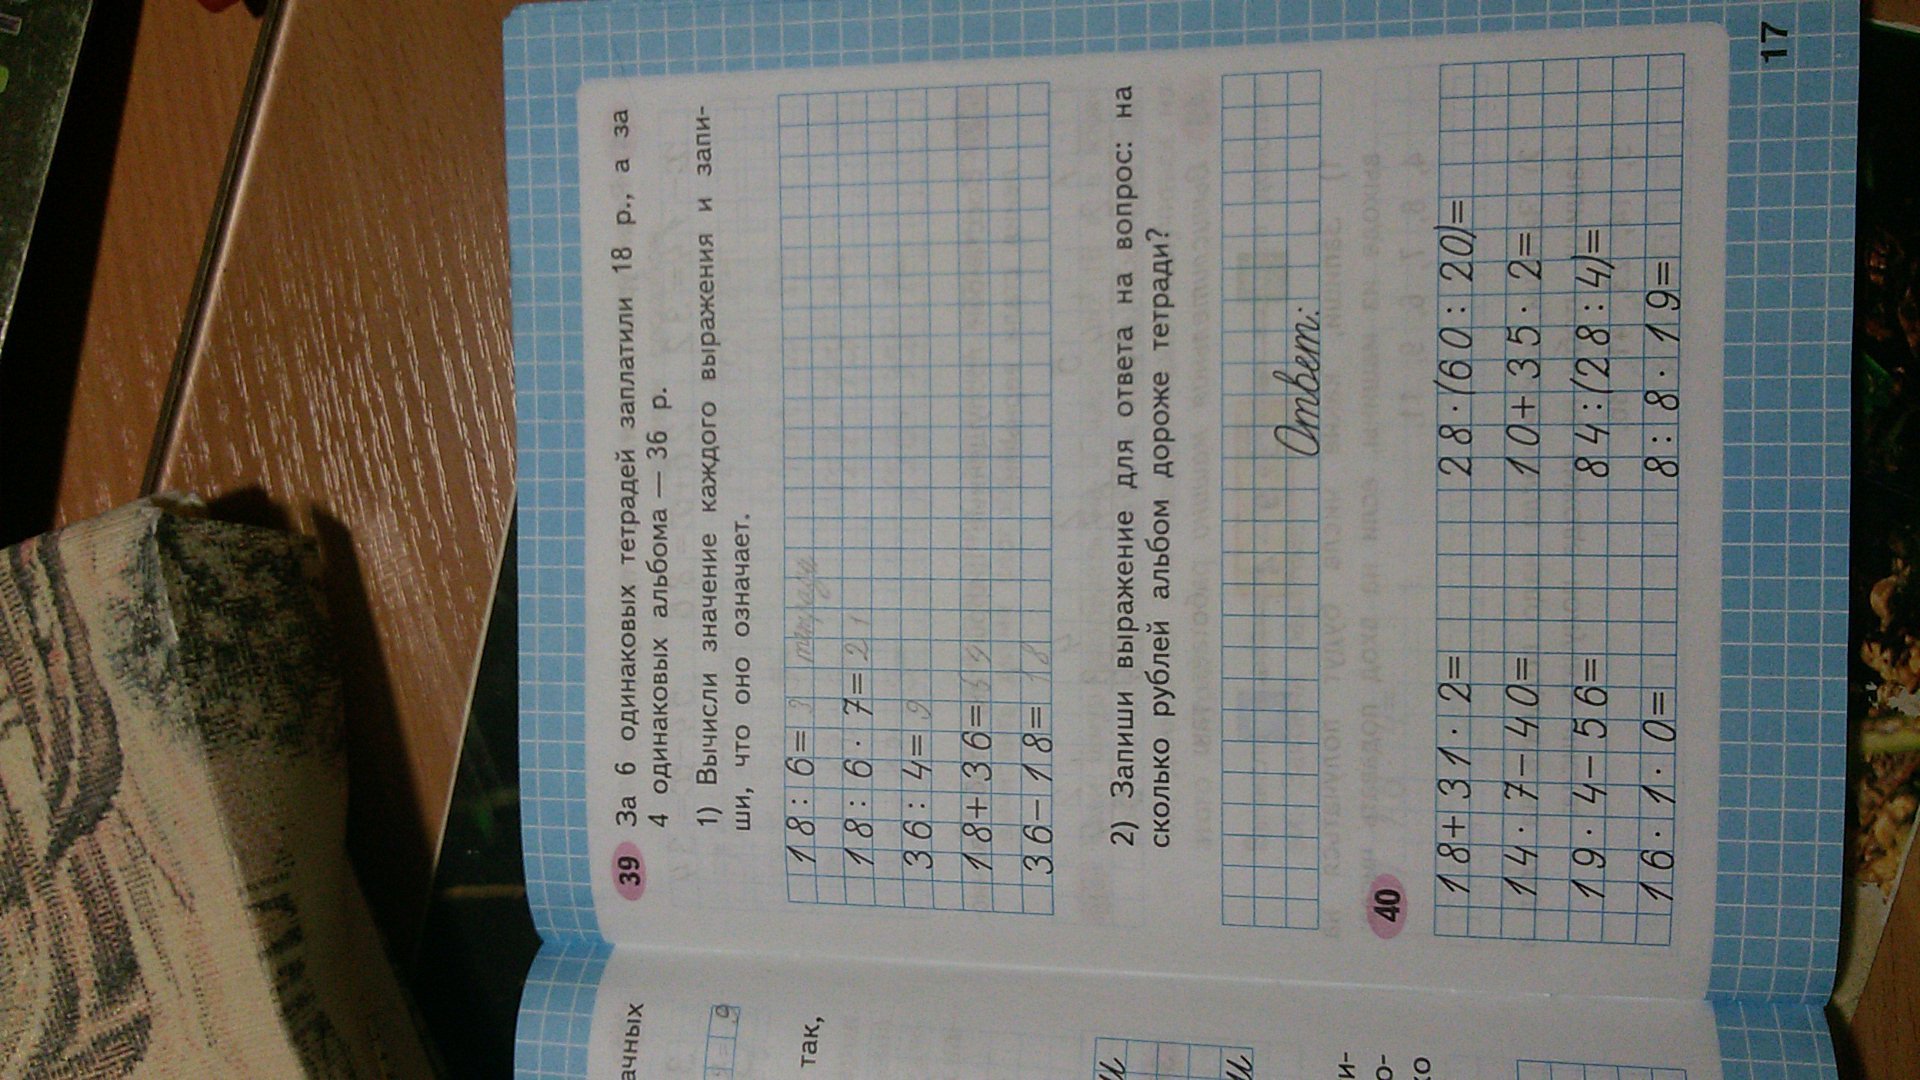 39 За 6 одинаковых тетрадей заплатили 18 р., а за
4 одинаковых альбома — 36 р.
1) Вычисли значение каждого выражения и запи-
ши, что оно означает.
18 : 6 = 3 тетради
18 : 6 · 7 = 21
36 : 4 = 9
18 + 36 =
36 − 18 = 18
2) Запиши выражение для ответа на вопрос: на
сколько рублей альбом дороже тетради?
Ответ:
40
18 + 31 · 2 = 28 · (60 : 20) =
14 · 7 − 40 = 10 + 35 · 2 =
19 · 4 − 56 = 84 : (28 : 4) =
16 · 1 · 0 = 8 : 8 · 19 =
17
ачных
9
так,
и
и
и-
о-
ко